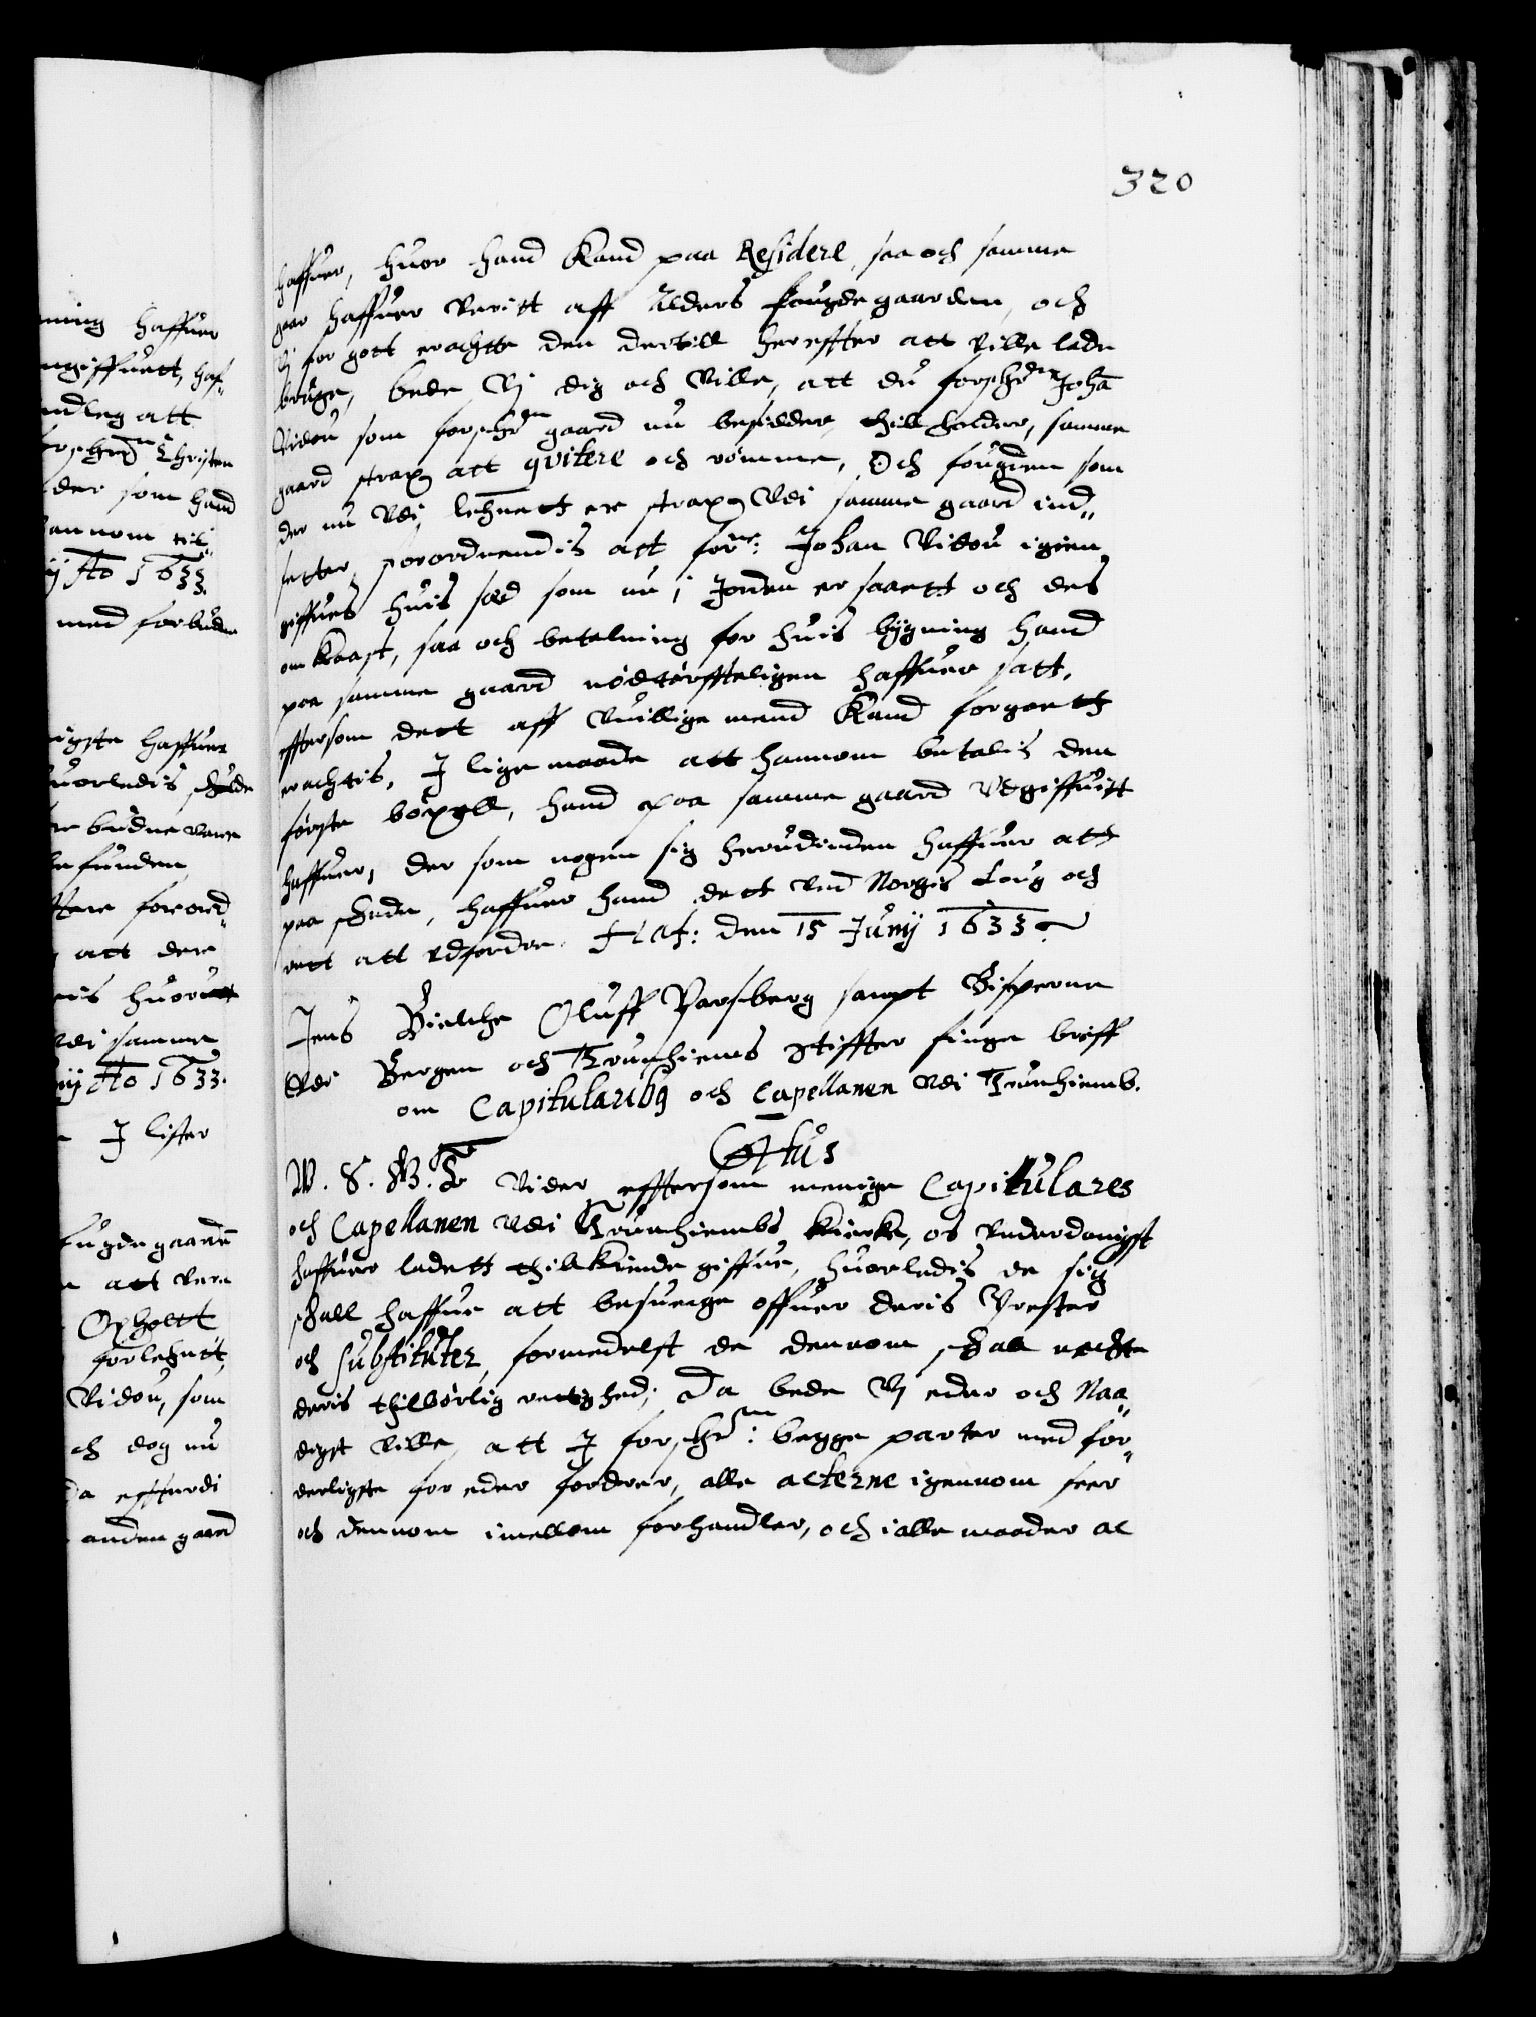 320
haffuer, huor hand Kand paa Residere, saa och samme
gaar haffuer veritt aff Alders fougde gaarden, och
Vj for gott erachtte den dertill hereffter att ville lade
bruge, bede Vj dig och Ville, att du forschrefne Johan
Vidou som forschrefne gaard nu besidder, thill holder, samme
gaard strax att qvitere och römme, Och fougden som
der nu vdi lehnett er strax vdi samme gaard ind„
setter, forordnendis att forne: Johan Vidou igien
giffues huis sæd som nu i Jorden er saaett och des
omkaast, saa och betalning for huis bÿgning hand
paa samme gaard nödtörffteligen haffuer satt,
efftersom dett aff Vuillige mend Kand forgaatt
erachtis, I lige maade att hannom betalis den
förste böxell, hand paa samme gaard Vdgiffuitt
haffuer, der som nogen sig herudinden haffuer att
paa schade, haffuer hand dett ved Norgis Loug och
rett att vdfordre. Haf: den 15 Junij 1633.
Jens Bielche Oluff Parsberg sampt Bisperne
Vdi Bergen och Trundhiems Stiffter finge breff
om Capitularibq och Capellanen vdi Trunhiemb.
C4tus
W. S. G. T. Vider efftersom menige Capitulares
och Capellanen vdi Trounhiembs kiercke, os vnderdanigst
haffuer ladett thilkiende giffue, huorledis de sig
schall haffue att besuerge offuer deris Prester
och substituter, formedelst de dennom schall negte
deris thilbörlig rettighed; Da bede Vj eder och Naa„
digst Ville, att I forschrefne: begge parter med for„
derligste for eder fordrer, alle acterne igennom seer
och dennom imellom forhandler, och i alle maader al
ning haffuer
ngiffuett, haf„
ndleg att
forschrefne Christen
der som hand
annom til„
ij Ao 1633.
med forbuden
igste haffuer
uorledis schulde
re budne varre
befunden
ttere forord„
att dere
is huoruel
vdi samme
nij Ao 1633.
I lister
fugde gaarden
att vere
Opholtt
forlehnett,
Vidou, som
ch dog nu
Da efftterdi
anden gaard